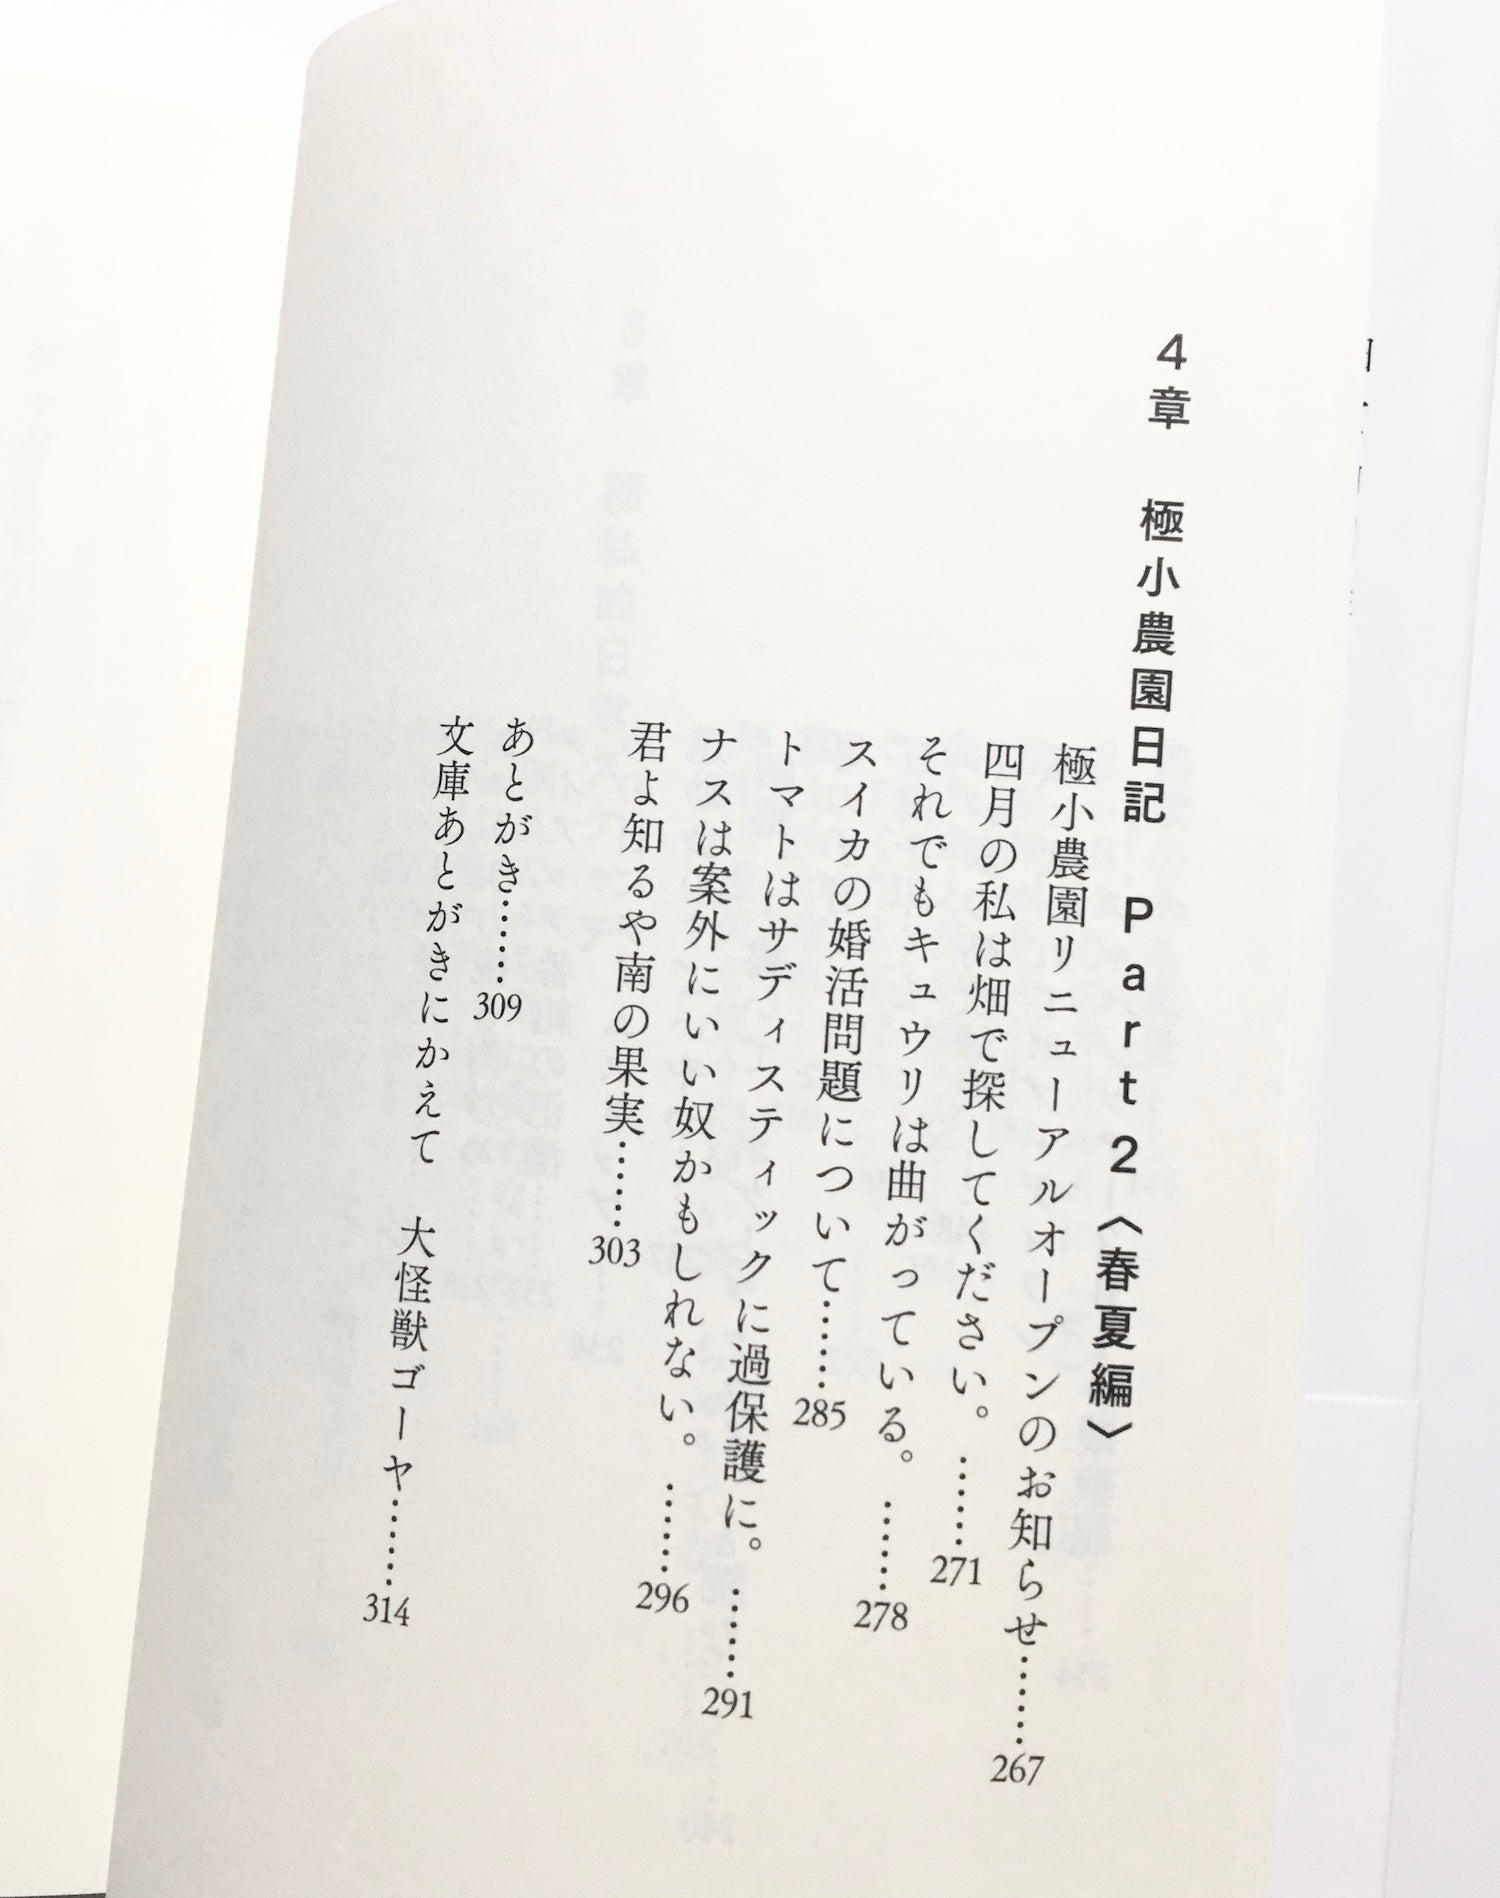 4章 極小農園日記 Part2〈春夏編〉
極小農園リニューアルオープンのお知らせ……267
四月の私は畑で探してください。……271
それでもキュウリは曲がっている。……278
スイカの婚活問題について……285
トマトはサディスティックに過保護に。……291
ナスは案外にいい奴かもしれない。……296
君よ知るや南の果実……303
あとがき……309
文庫あとがきにかえて 大怪獣ゴーヤ……314